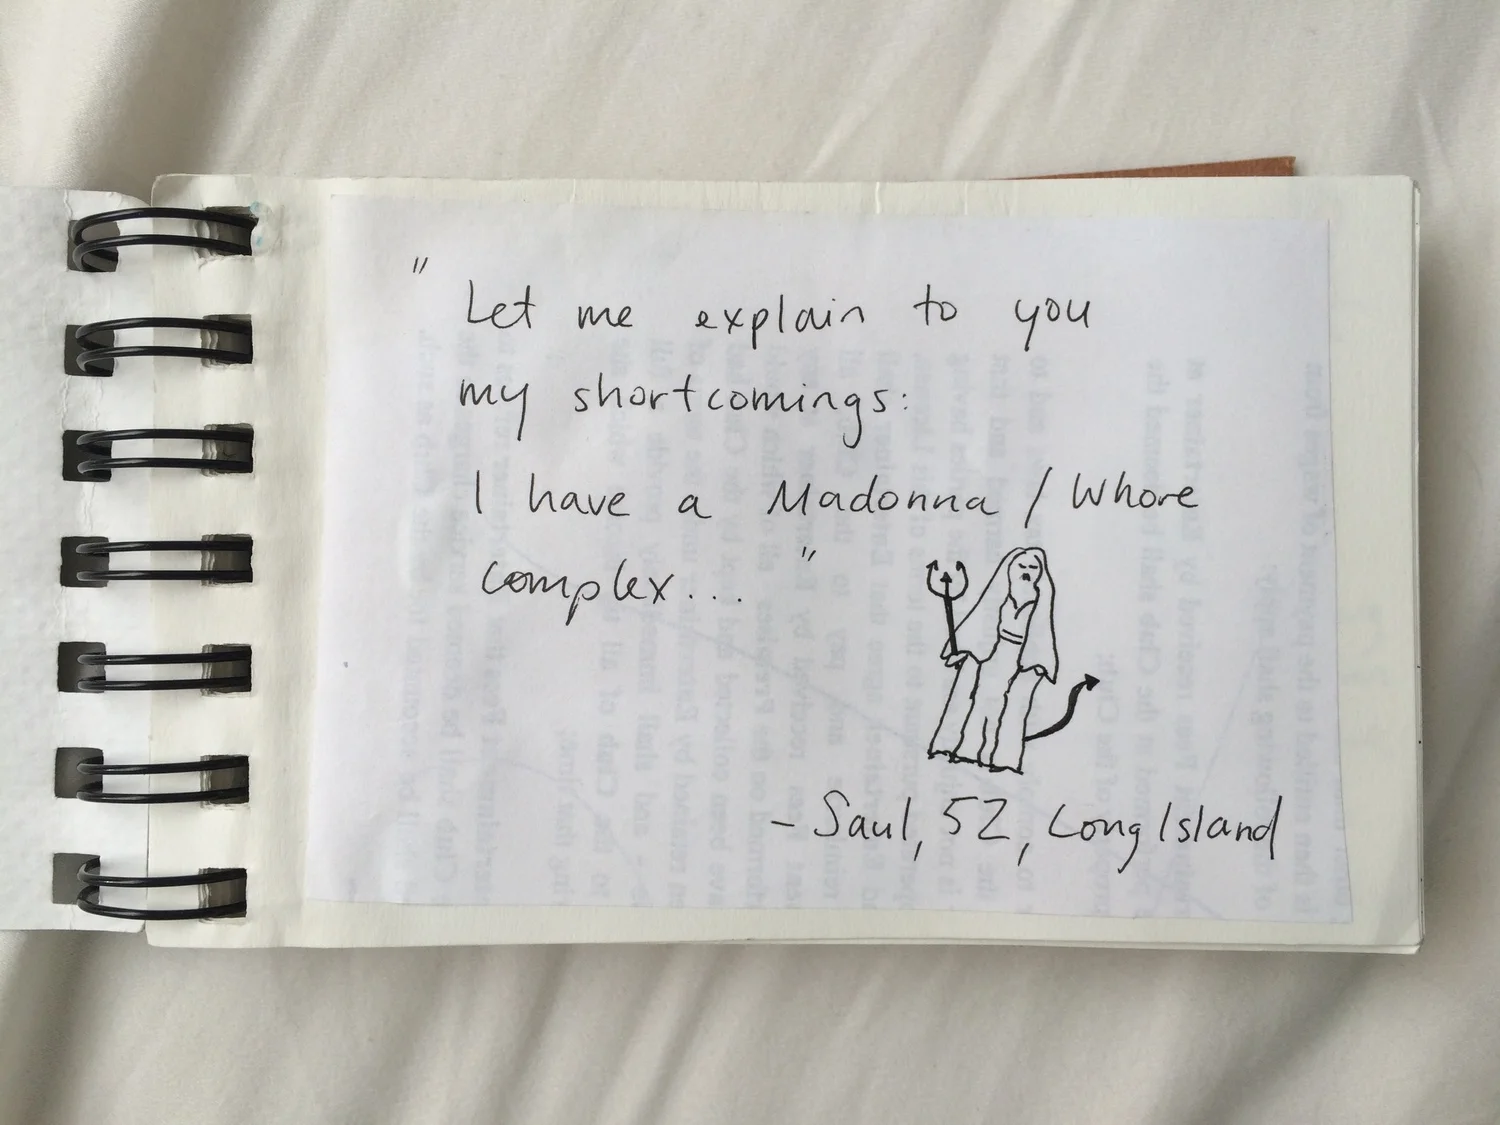 "Let me explain to you
my shortcomings:
I have a Madonna / Whore
complex..."
- Saul, 52, Long Island